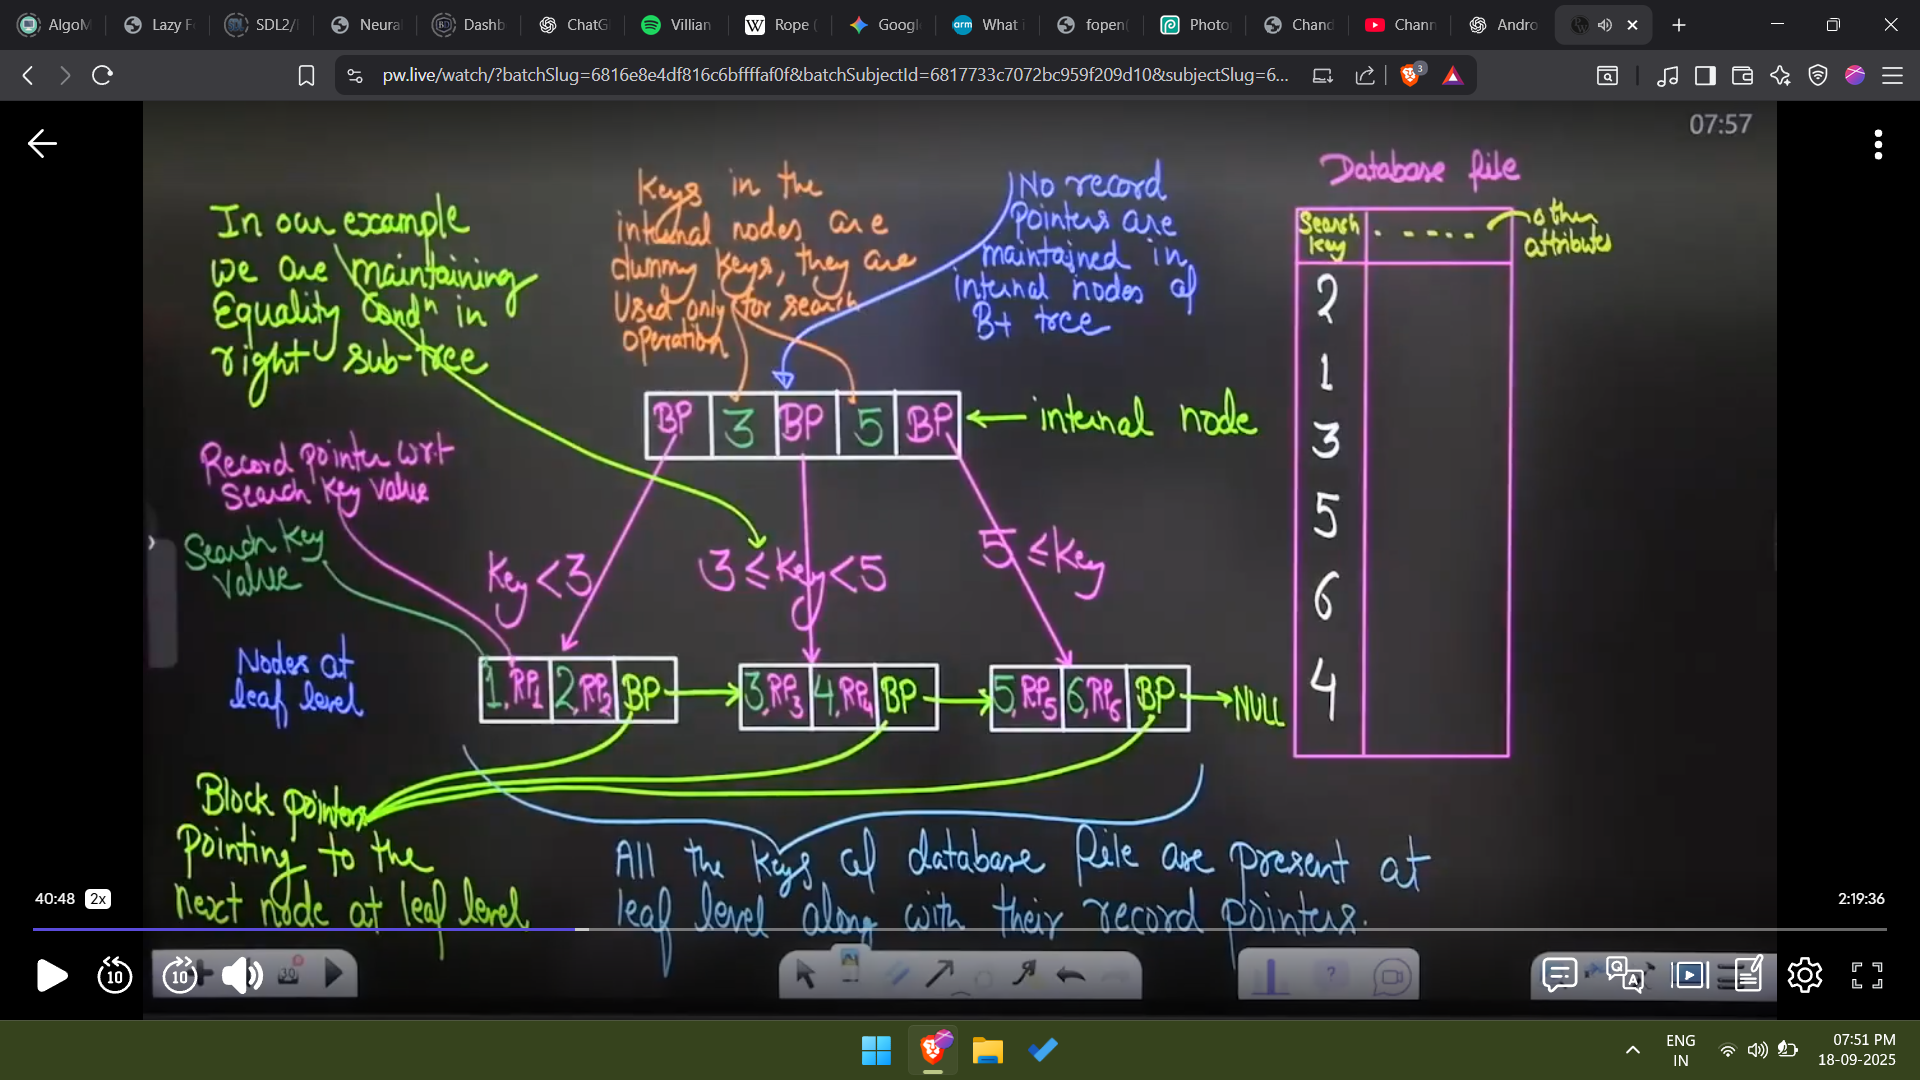 AlgoM
Lazy F
SDL2/
Neura
Dashb
ChatG
Villian
Rope (
Googl
What i
fopen(
Photo
Chand
Chann
Andro
pw.live/watch/?batchSlug=6816e8e4df816c6bffffaf0f&batchSubjectId=6817733c7072bc959f209d10&subjectSlug=6...
3
07:57
In our example
we are maintaining
Equality Condn in
right sub-tree
Keys in the
internal nodes are
dummy keys, they are
Used only for search
operation
No record
pointers are
maintained in
internal nodes of
B+ tree
Database file
Search
key
other
attributes
2
1
3
5
6
4
BP 3 BP 5 BP
internal node
Record pointer w.r.t
Search Key value
Search key
value
Key < 3
3 ≤ Key < 5
5 ≤ Key
Nodes at
leaf level
1, RP1 2, RP2 BP
3, RP3 4, RP4 BP
5, RP5 6, RP6 BP
NULL
Block pointers
pointing to the
next node at leaf level
All the keys of database file are present at
leaf level along with their record pointers.
40:48 2x
2:19:36
10
10
30
ENG
IN
07:51 PM
18-09-2025